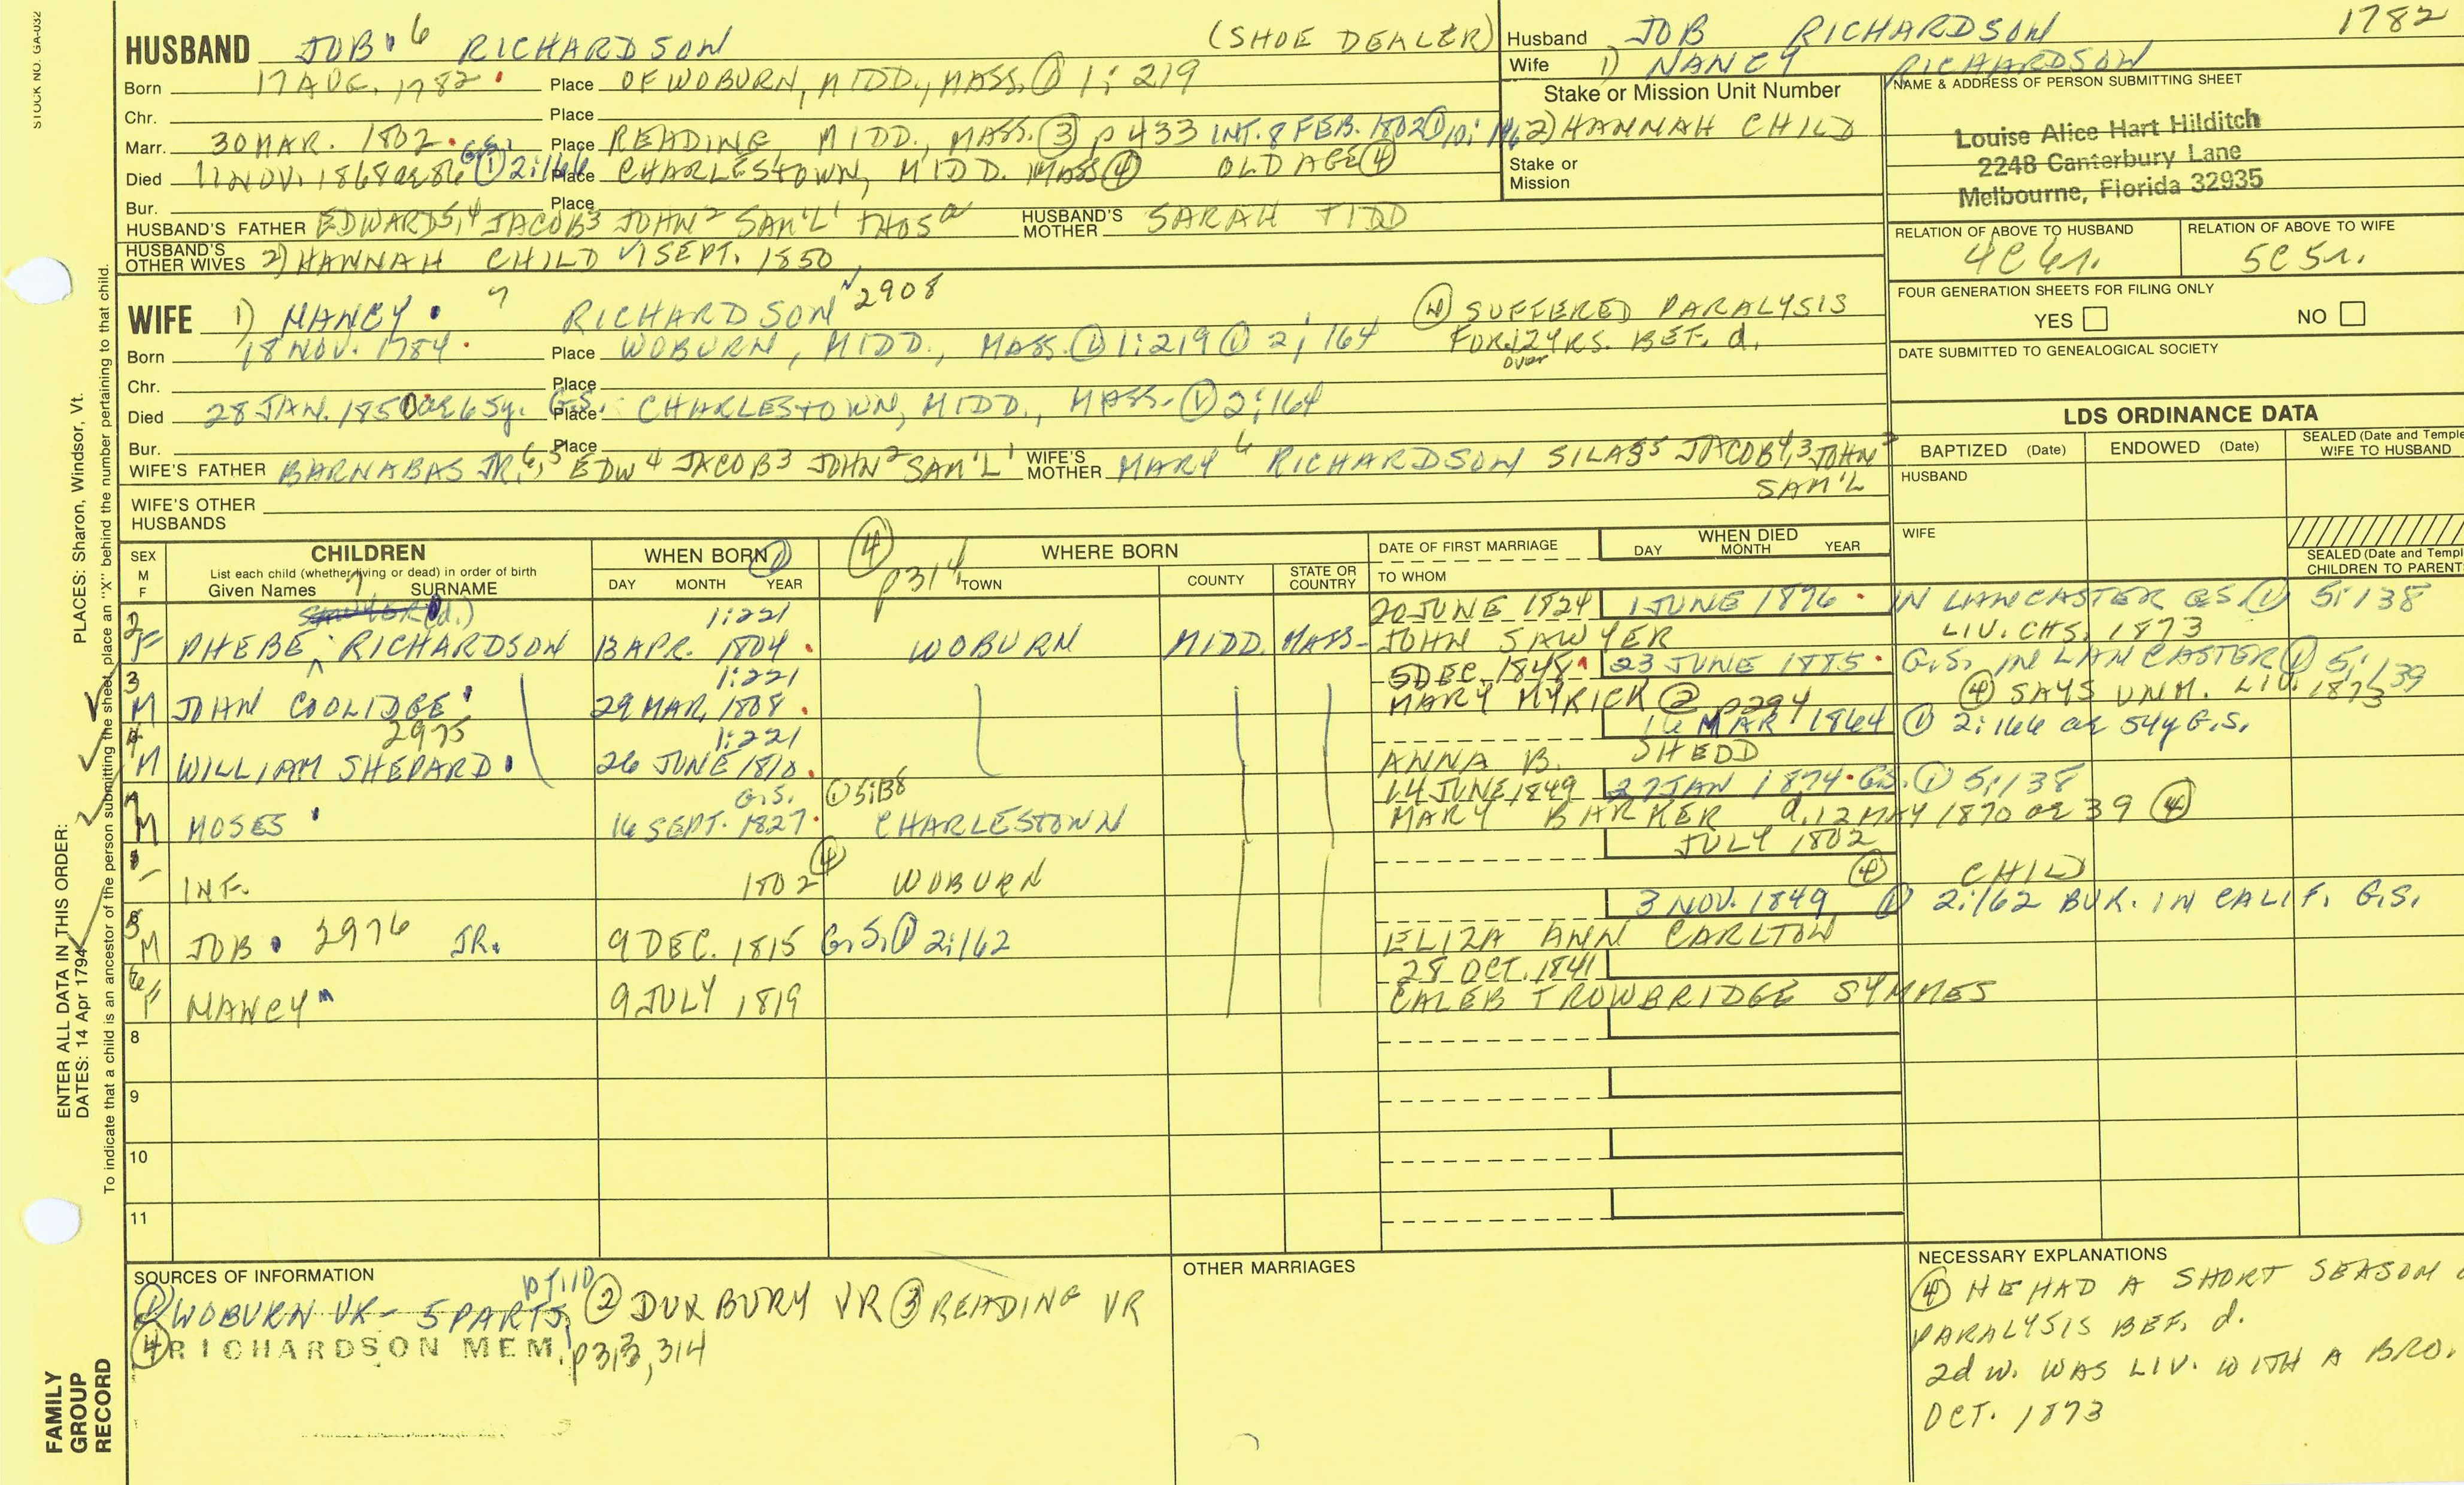 STOCK NO. GA-032
HUSBAND JOB 6 RICHARDSON (SHOE DEALER)
Born 17 AUG. 1782 Place OF WOBURN, MIDD., MASS. ① 1:219
Chr. Place
Marr. 30 MAR. 1802 Place READING, MIDD., MASS. ③ p 433 INT. 8 FEB. 1802 ①
Died 11 NOV. 1868 ae 86 G.S. ① 2:166 Place CHARLESTOWN, MIDD. MASS ④ OLD AGE ④
Bur. Place
HUSBAND'S FATHER EDWARD 5,4 JACOB 3 JOHN 2 SAM'L 1 THOS a HUSBAND'S MOTHER SARAH TIDD
HUSBAND'S OTHER WIVES 2) HANNAH CHILD 1 SEPT. 1850
WIFE 1) NANCY 7 RICHARDSON 2908
④ SUFFERED PARALYSIS
FOR 12 YRS. BEF. d.
over
Born 18 NOV. 1784 Place WOBURN, MIDD., MASS. ① 1:219 ① 2:164
Chr. Place
Died 28 JAN. 1850 ae 65y. G.S. Place CHARLESTOWN, MIDD., MASS. ① 2:164
Bur. Place
WIFE'S FATHER BARNABAS JR. 6,5 EDW 4 JACOB 3 JOHN 2 SAM'L 1 WIFE'S MOTHER MARY 6 RICHARDSON SILAS 5 JACOB 4,3 JOHN 2
SAM'L
WIFE'S OTHER HUSBANDS
Husband JOB RICHARDSON 1782
Wife 1) NANCY RICHARDSON
Stake or Mission Unit Number
2) HANNAH CHILD
Stake or Mission
NAME & ADDRESS OF PERSON SUBMITTING SHEET
Louise Alice Hart Hilditch
2248 Canterbury Lane
Melbourne, Florida 32935
RELATION OF ABOVE TO HUSBAND RELATION OF ABOVE TO WIFE
4C 6r. 5C 5r.
FOUR GENERATION SHEETS FOR FILING ONLY
YES NO
DATE SUBMITTED TO GENEALOGICAL SOCIETY
LDS ORDINANCE DATA
BAPTIZED (Date) ENDOWED (Date) SEALED (Date and Temple) WIFE TO HUSBAND
HUSBAND
WIFE
SEALED (Date and Temple) CHILDREN TO PARENTS
SEX M F
CHILDREN
List each child (whether living or dead) in order of birth
Given Names SURNAME
WHEN BORN ①
DAY MONTH YEAR
④ p314
WHERE BORN
TOWN COUNTY STATE OR COUNTRY
DATE OF FIRST MARRIAGE
TO WHOM
WHEN DIED
DAY MONTH YEAR
(d.) 1:221 20 JUNE 1824 1 JUNE 1896 IN LANCASTER GS. ① 5:138
2 F PHEBE 7 RICHARDSON 13 APR. 1804 WOBURN MIDD. MASS- JOHN SAWYER LIV. CHS. 1873
1:221 5 DEC. 1848 23 JUNE 1885 G.S. IN LANCASTER ① 5:139
3 M JOHN COOLIDGE 29 MAR. 1808 MARY MYRICK ② p294 ④ SAYS UNM. LIV. 1873
2975 1:221 16 MAR 1864 ① 2:166 ae 54y G.S.
4 M WILLIAM SHEPARD 26 JUNE 1810 ANNA B. SHEDD
G.S. ① 5:138 14 JUNE 1849 27 JAN 1874 G.S. ① 5:138
7 M MOSES 16 SEPT. 1827 CHARLESTOWN MARY BARKER d. 12 MAY 1870 ae 39 ④
JULY 1802
- INF. 1802 ④ WOBURN ④ CHILD
3 NOV. 1849 ① 2:162 BUR. IN CALIF. G.S.
5 M JOB 2976 JR. 9 DEC. 1815 G.S. ① 2:162 ELIZA ANN CARLTON
28 OCT. 1841
6 F NANCY 9 JULY 1819 CALEB TROWBRIDGE SYMMES
8
9
10
11
SOURCES OF INFORMATION
① WOBURN VR - 5 PARTS, ② DUXBURY VR ③ READING VR
④ RICHARDSON MEM. p313, 314
OTHER MARRIAGES
NECESSARY EXPLANATIONS
④ HE HAD A SHORT SEASON
PARALYSIS BEF. d.
2d w. WAS LIV. WITH A BRO.
OCT. 1873
ENTER ALL DATA IN THIS ORDER:
DATES: 14 Apr 1794
PLACES: Sharon, Windsor, Vt.
To indicate that a child is an ancestor of the person submitting the sheet, place an "X" behind the number pertaining to that child.
FAMILY GROUP RECORD